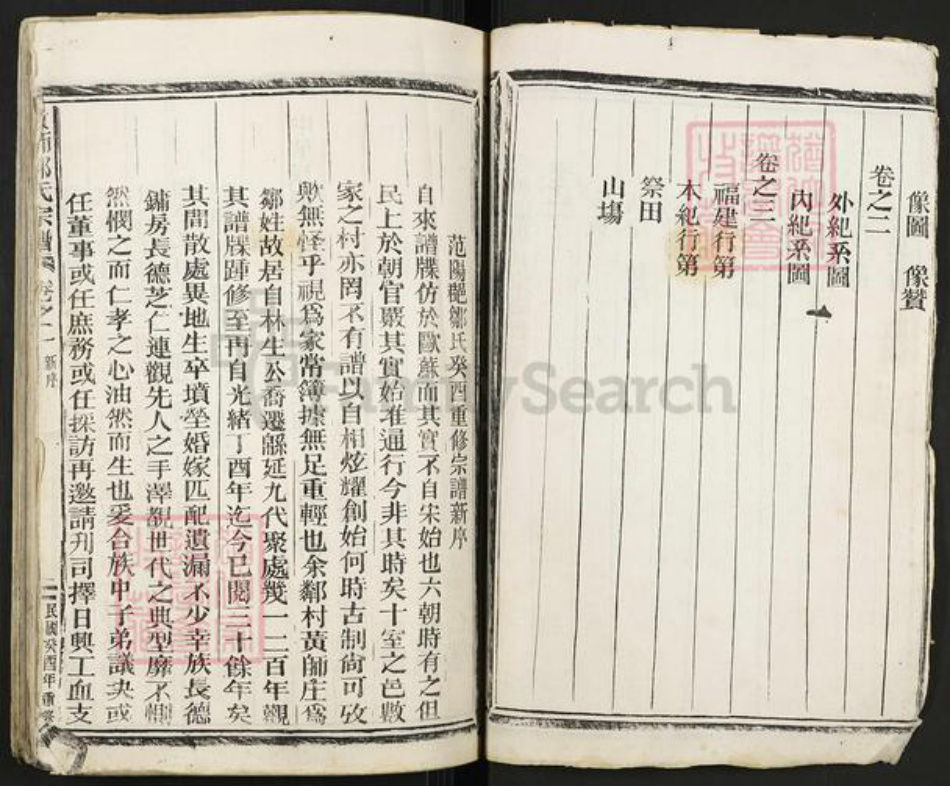 像圖 像贊
卷之二
外紀系圖
內紀系圖
卷之三
福建行第
木紀行第
祭田
山塲
范陽郡鄒氏癸酉重修宗譜新序
自來譜牒仿於歐蘇而其實不自宋始也六朝時有之但
民上於朝官嚴其實始准通行今非其時矣十室之邑數
家之村亦罔不有譜以自相炫耀創始何時古制尙可攷
歟無怪乎視爲家常簿據無足重輕也余鄰村黃師庄爲
鄒姓故居自林生公喬遷緜延九代聚處幾一二百年觀
其譜牒踵修至再自光緒丁酉年迄今已閱三十餘年矣
其間散處異地生卒墳塋婚嫁匹配遺漏不少幸族長德
鏞房長德芝仁連觀先人之手澤覩世代之典型靡不惻
然憫之而仁孝之心油然而生也爰合族中子弟議決或
任董事或任庶務或任採訪再邀請刋司擇日興工血支
鄒氏宗譜 卷之一 新序
民國癸酉年重修
FamilySearch